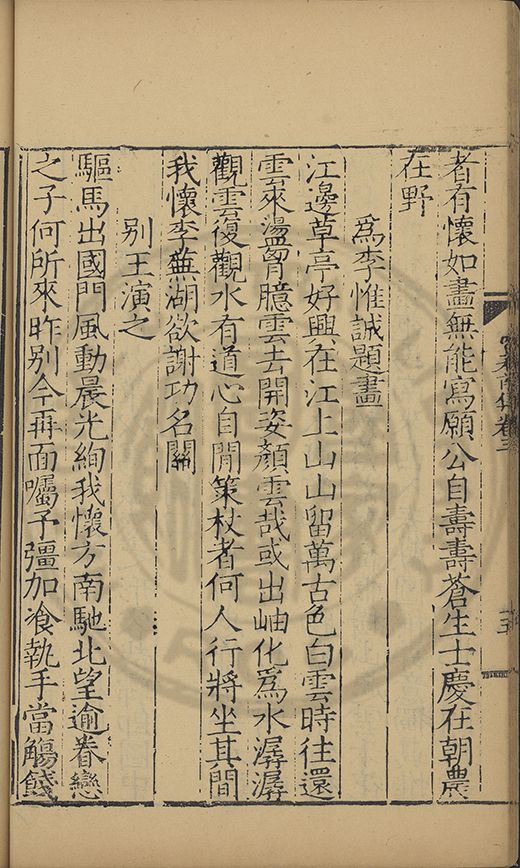 者有懷如盡無能寫願公自壽壽蒼生士慶在朝農
在野
爲李惟誠題畫
江邊草亭好興在江上山山留萬古色白雲時往還
雲來盪胷臆雲去開姿顏雲哉或出岫化爲水潺潺
觀雲復觀水有道心自閒策杖者何人行將坐其間
我懷李蕪湖欲謝功名關
别王演之
驅馬出國門風動晨光絢我懷方南馳北望逾眷戀
之子何所來昨别今再面囑予彊加飡執手當觴餞